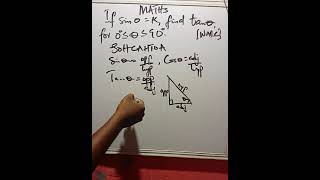 MATHS
If sinθ = K, find tanθ,
for 0°≤θ≤90°. [WAEC]
SOHCAHTOA
Sinθ = opp/hyp, Cosθ = adj/hyp
Tanθ = opp/adj
opp hyp
θ
adj